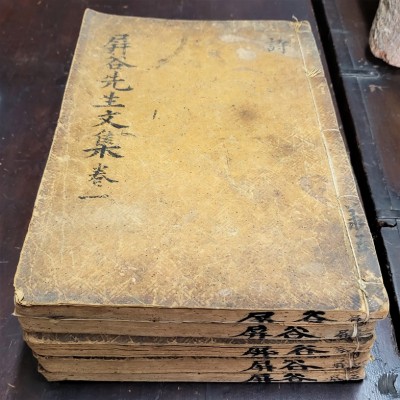 屛谷先生文集卷一
詩
屛谷
屛谷
屛谷
屛谷
屛谷